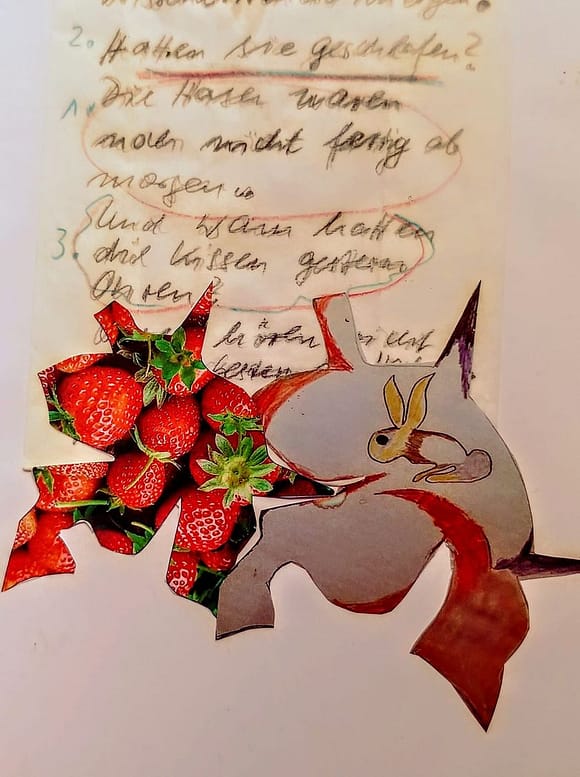 2. Hatten sie geschlafen?
1. Die Hasen waren
noch nicht fertig ab
morgen.
Und wann hatten
3. die Kissen gestern
Ohren?
hören